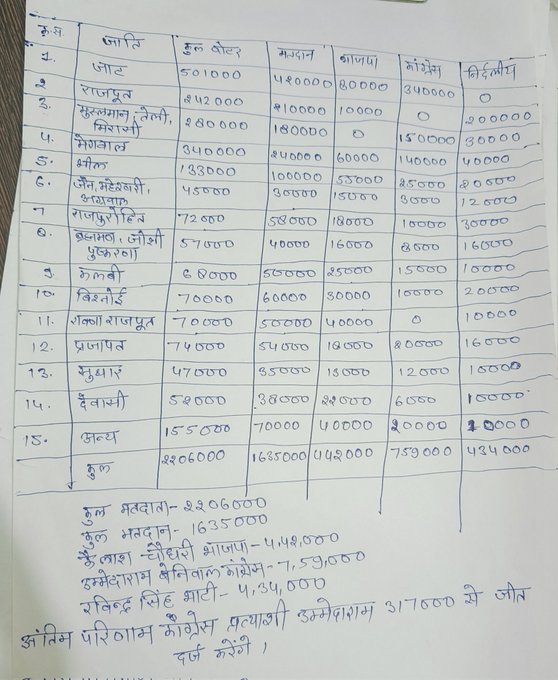 क्र.स. जाति कुल वोटर मतदान भाजपा कांग्रेस निर्दलीय
1. जाट 501000 420000 80000 340000 0
2 राजपूत 242000 210000 10000 0 200000
3. मुस्लमान, तेली, मिरासी 280000 180000 0 150000 30000
4. मेगवाल 340000 240000 60000 140000 40000
5. भील 133000 100000 55000 25000 20000
6. जैन, महेश्वरी, अग्रवाल 45000 30000 15000 3000 12000
7 राजपुरोहित 72000 58000 18000 10000 30000
8. ब्राह्मण, जोशी पुष्करणा 57000 40000 16000 8000 16000
9. कलबी 68000 50000 25000 15000 10000
10. बिश्नोई 70000 60000 30000 10000 20000
11. राजपूत 70000 50000 40000 0 10000
12. प्रजापत 74000 54000 18000 20000 16000
13. सुथार 47000 35000 13000 12000 10000
14. देवासी 52000 38000 22000 6000 10000
15. अन्य 155000 70000 40000 20000 10000
कुल 2206000 1635000 442000 759000 434000
कुल मतदाता- 2206000
कुल मतदान- 1635000
कैलाश चौधरी भाजपा- 4,42,000
उम्मेदाराम बेनिवाल कांग्रेस- 7,59,000
रविन्द्र सिंह भाटी- 4,34,000
अंतिम परिणाम कांग्रेस प्रत्याशी उम्मेदाराम 317000 से जीत
दर्ज करेंगे।